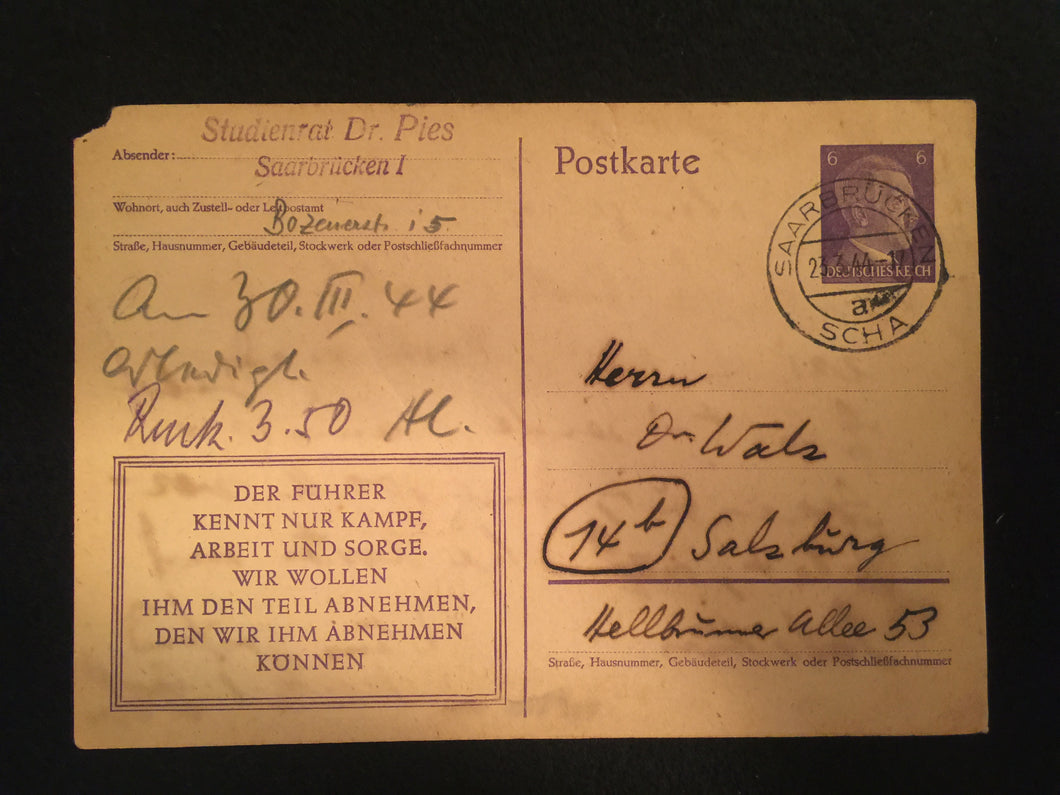 Studienrat Dr. Pies
Absender:
Saarbrücken I
Wohnort, auch Zustell- oder Leitpostamt
Bozenerstr. 15
Straße, Hausnummer, Gebäudeteil, Stockwerk oder Postschließfachnummer
Am 30. III. 44
erledigt.
3.50
DER FÜHRER
KENNT NUR KAMPF,
ARBEIT UND SORGE.
WIR WOLLEN
IHM DEN TEIL ABNEHMEN,
DEN WIR IHM ABNEHMEN
KÖNNEN
Postkarte
6 6
DEUTSCHES REICH
SAARBRÜCKEN
23.3.44
a
SCHA
Herrn
Dr. Walz
14b Salzburg
Hellbrunner Allee 53
Straße, Hausnummer, Gebäudeteil, Stockwerk oder Postschließfachnummer